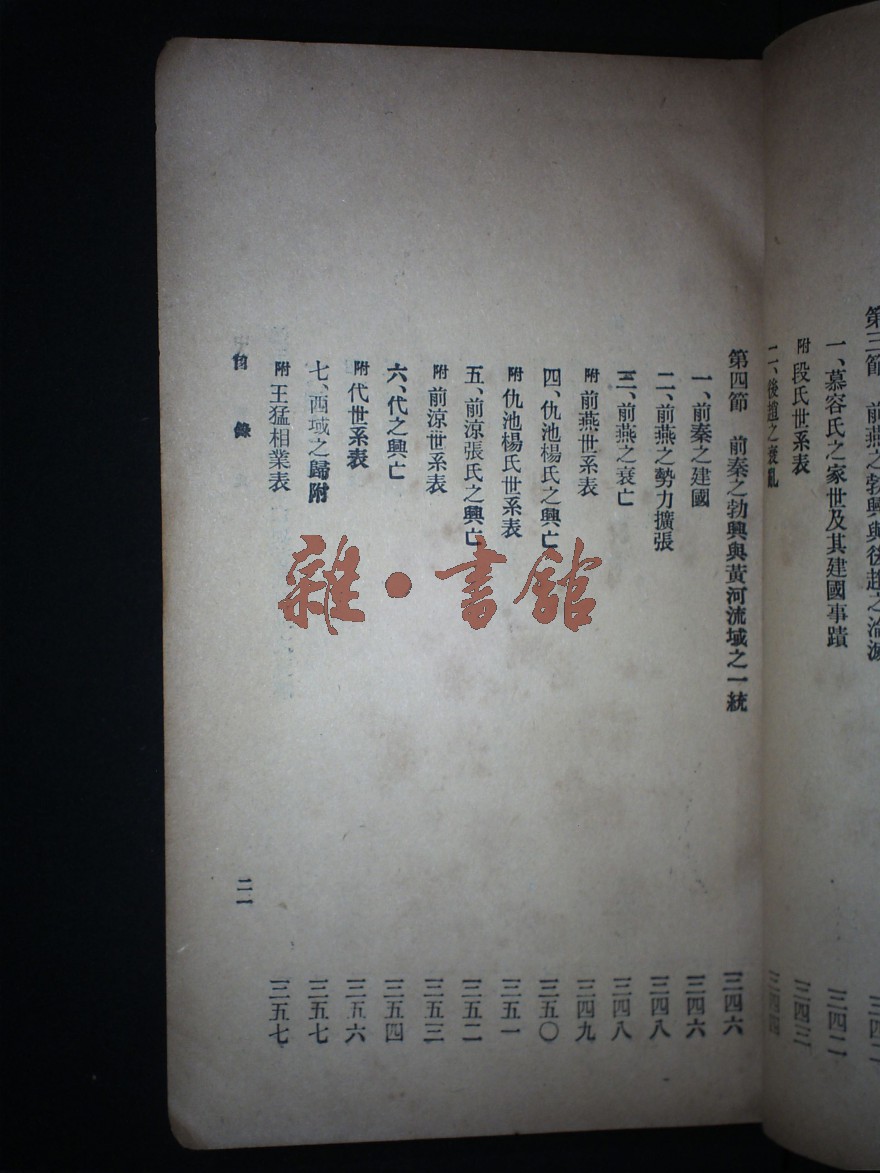 第三節 前燕之勃興與後趙之淪滅
一、慕容氏之家世及其建國事蹟 三四二
附 段氏世系表 三四三
二、後趙之衰亂 三四四
第四節 前秦之勃興與黃河流域之一統 三四六
一、前秦之建國 三四六
二、前燕之勢力擴張 三四八
三、前燕之衰亡 三四八
附 前燕世系表 三四九
四、仇池楊氏之興亡 三五〇
附 仇池楊氏世系表 三五一
五、前涼張氏之興亡 三五二
附 前涼世系表 三五三
六、代之興亡 三五四
附 代世系表 三五六
七、西域之歸附 三五七
附 王猛相業表 三五七
目錄
二一
雜·書館